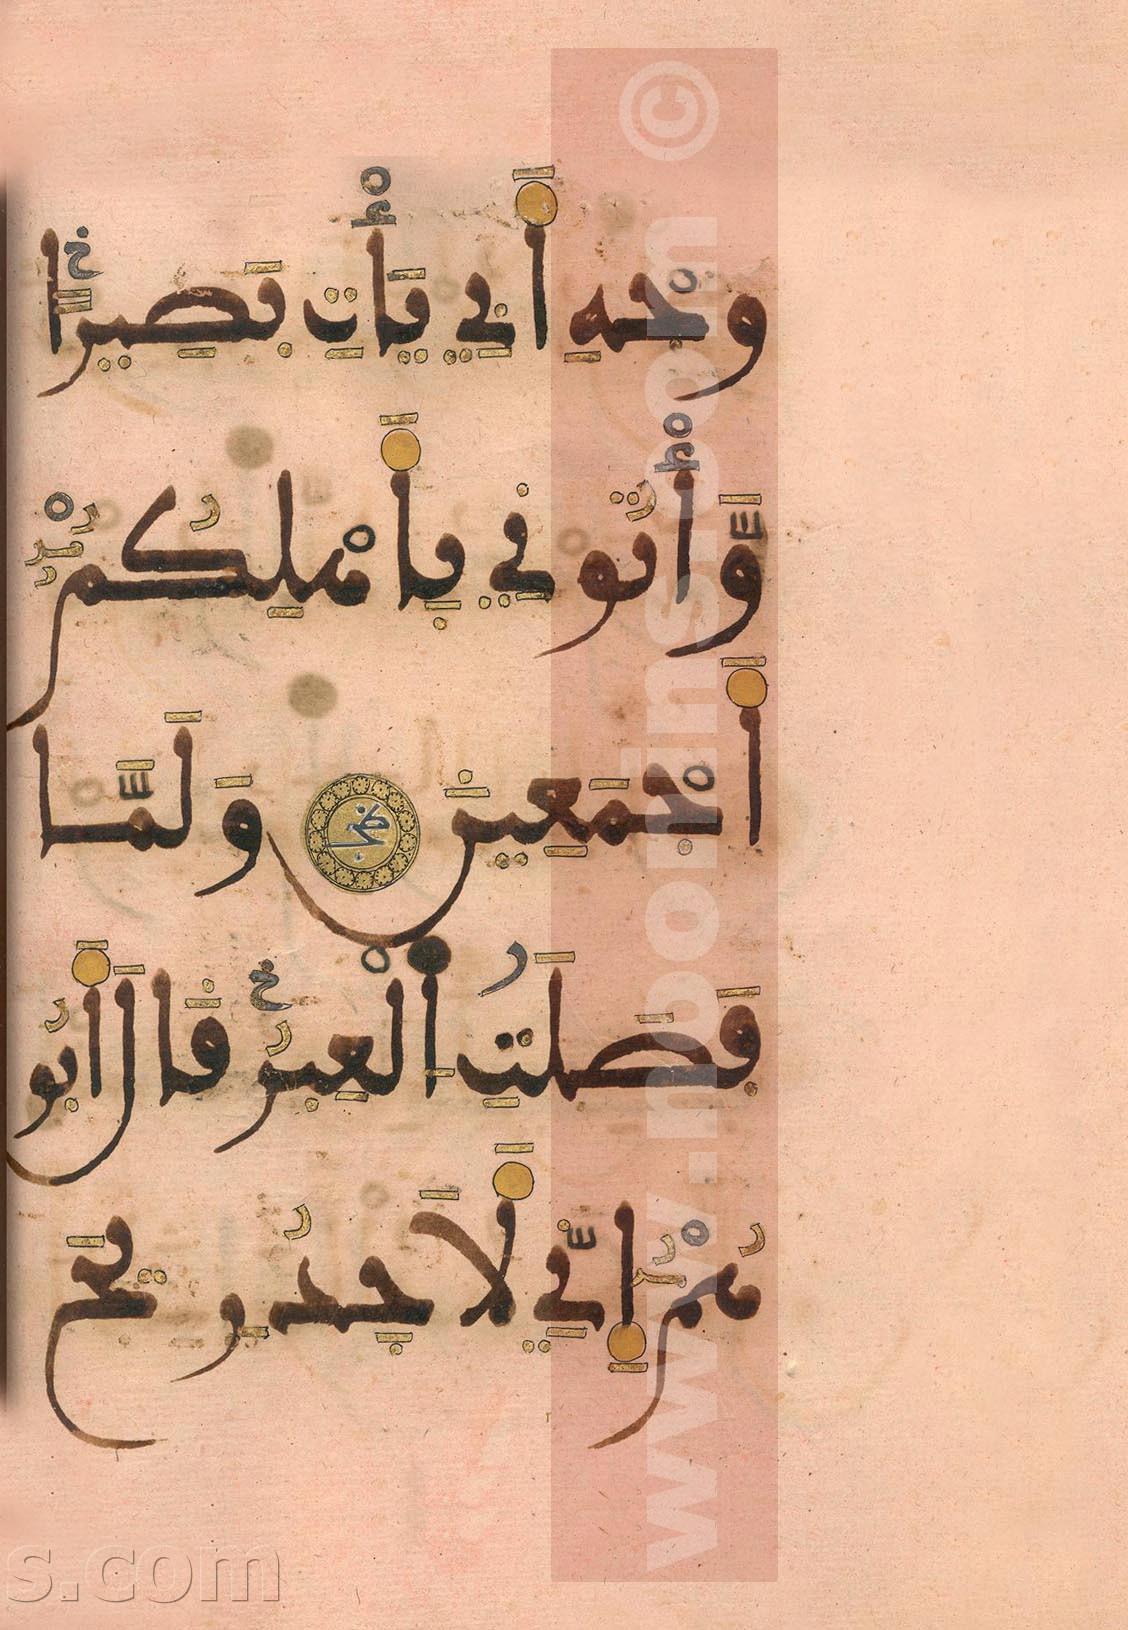 وَجْهِ أَبِي يَأْتِ بَصِيرًا
وَّأْتُونِي بِأَهْلِكُمْ
أَجْمَعِينَ وَلَمَّا
فَصَلَتِ ٱلْعِيرُ قَالَ أَبُو
هُمْ إِنِّي لَأَجِدُ رِيحَ
www.moleiro.com ©
s.com